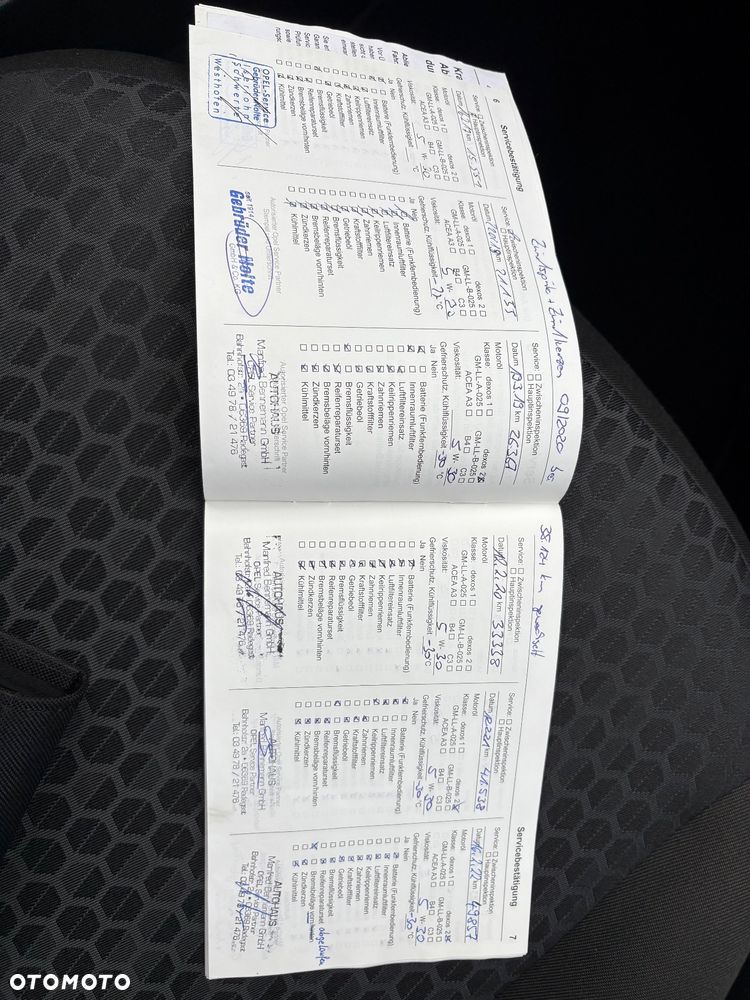 6
Servicebestätigung
Service: Zwischeninspektion
Hauptinspektion
km 15.551
Motoröl
Klasse: dexos 1 dexos 2
GM-LL-A-025 GM-LL-B-025
ACEA A3 B4 C3
Viskosität: 5 W- 30
Gefrierschutz, Kühlflüssigkeit °C
Ja Nein
Batterie (Funkfernbedienung)
Innenraumluftfilter
Luftfiltereinsatz
Keilrippenriemen
Zahnriemen
Kraftstofffilter
Getriebeöl
Bremsflüssigkeit
Reifenreparaturset
Bremsbeläge vorn/hinten
Zündkerzen
Kühlmittel
OPEL-Service
Gebrüder Nolte
Iserlohn
Schwerte
Westhofen
Service: Zwischeninspektion
Hauptinspektion
Datum km 21.155
Motoröl
Klasse: dexos 1 dexos 2
GM-LL-A-025 GM-LL-B-025
ACEA A3 B4 C3
Viskosität: 5 W-
Gefrierschutz, Kühlflüssigkeit °C
Ja Nein
Batterie (Funkfernbedienung)
Innenraumluftfilter
Luftfiltereinsatz
Keilrippenriemen
Zahnriemen
Kraftstofffilter
Getriebeöl
Bremsflüssigkeit
Reifenreparaturset
Bremsbeläge vorn/hinten
Zündkerzen
Kühlmittel
Autorisierter Opel Service Partner
seit 1914
Gebrüder Nolte
GmbH & Co. KG
Zündspule + Zündkerzen 09/2020 bei
Service: Zwischeninspektion
Hauptinspektion
Datum 3.19 km 26361
Motoröl
Klasse: dexos 1 dexos 2
GM-LL-A-025 GM-LL-B-025
ACEA A3 B4 C3
Viskosität: 5 W- 30
Gefrierschutz, Kühlflüssigkeit -30 °C
Ja Nein
Batterie (Funkfernbedienung)
Innenraumluftfilter
Luftfiltereinsatz
Keilrippenriemen
Zahnriemen
Kraftstofffilter
Getriebeöl
Bremsflüssigkeit
Reifenreparaturset
Bremsbeläge vorn/hinten
Zündkerzen
Kühlmittel
Autorisierter Opel Service Partner
AUTOHAUS
Manfred Bennemann GmbH
OPEL Service Partner
Tel.: 03 49 78 / 21 476
35.124 km gewechselt
Service: Zwischeninspektion
Hauptinspektion
Datum km 33338
Motoröl
Klasse dexos 1 dexos 2
GM-LL-A-025 GM-LL-B-025
ACEA A3 B4 C3
Viskosität: 5 W- 30
Gefrierschutz, Kühlflüssigkeit -30 °C
Ja Nein
Batterie (Funkfernbedienung)
Innenraumluftfilter
Luftfiltereinsatz
Keilrippenriemen
Zahnriemen
Kraftstofffilter
Getriebeöl
Bremsflüssigkeit
Reifenreparaturset
Bremsbeläge vorn/hinten
Zündkerzen
Kühlmittel
AUTOHAUS
Manfred Bennemann GmbH
OPEL Service Partner
7
Servicebestätigung
Service: Zwischeninspektion
Hauptinspektion
Datum km 41.538
Motoröl
Klasse: dexos 1 dexos 2
GM-LL-A-025 GM-LL-B-025
ACEA A3 B4 C3
Viskosität: 5 W- 30
Gefrierschutz, Kühlflüssigkeit -30 °C
Ja Nein
Batterie (Funkfernbedienung)
Innenraumluftfilter
Luftfiltereinsatz
Keilrippenriemen
Zahnriemen
Kraftstofffilter
Getriebeöl
Bremsflüssigkeit
Reifenreparaturset
Bremsbeläge vorn/hinten
Zündkerzen
Kühlmittel
AUTOHAUS
OPEL Service Partner
Tel. 03 49 78 / 21 476
Service: Zwischeninspektion
Hauptinspektion
Datum km 49857
Motoröl
Klasse: dexos 1 dexos 2
GM-LL-A-025 GM-LL-B-025
ACEA A3 B4 C3
Viskosität: 5 W- 30
Gefrierschutz, Kühlflüssigkeit -30 °C
Ja Nein
Batterie (Funkfernbedienung)
Innenraumluftfilter
Luftfiltereinsatz
Keilrippenriemen
Zahnriemen
Kraftstofffilter
Getriebeöl
Bremsflüssigkeit
Reifenreparaturset abgelaufen
Bremsbeläge vorn/hinten
Zündkerzen
Kühlmittel
AUTOHAUS
OPEL Service Partner
OTOMOTO